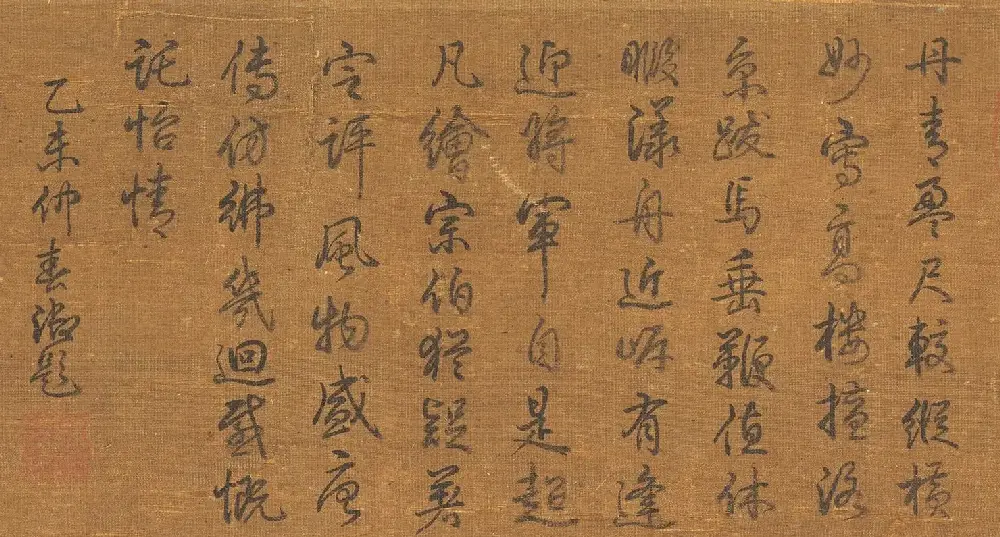 丹青盈尺較縱橫
妙寫高樓擅洛
京跋馬垂鞭值休
暇漾舟近岸有逢
迎將軍自是超
凡繪宗伯猶疑著
定評風物盛唐
傳仿彿幾迴感慨
託怡情
乙未仲春御題